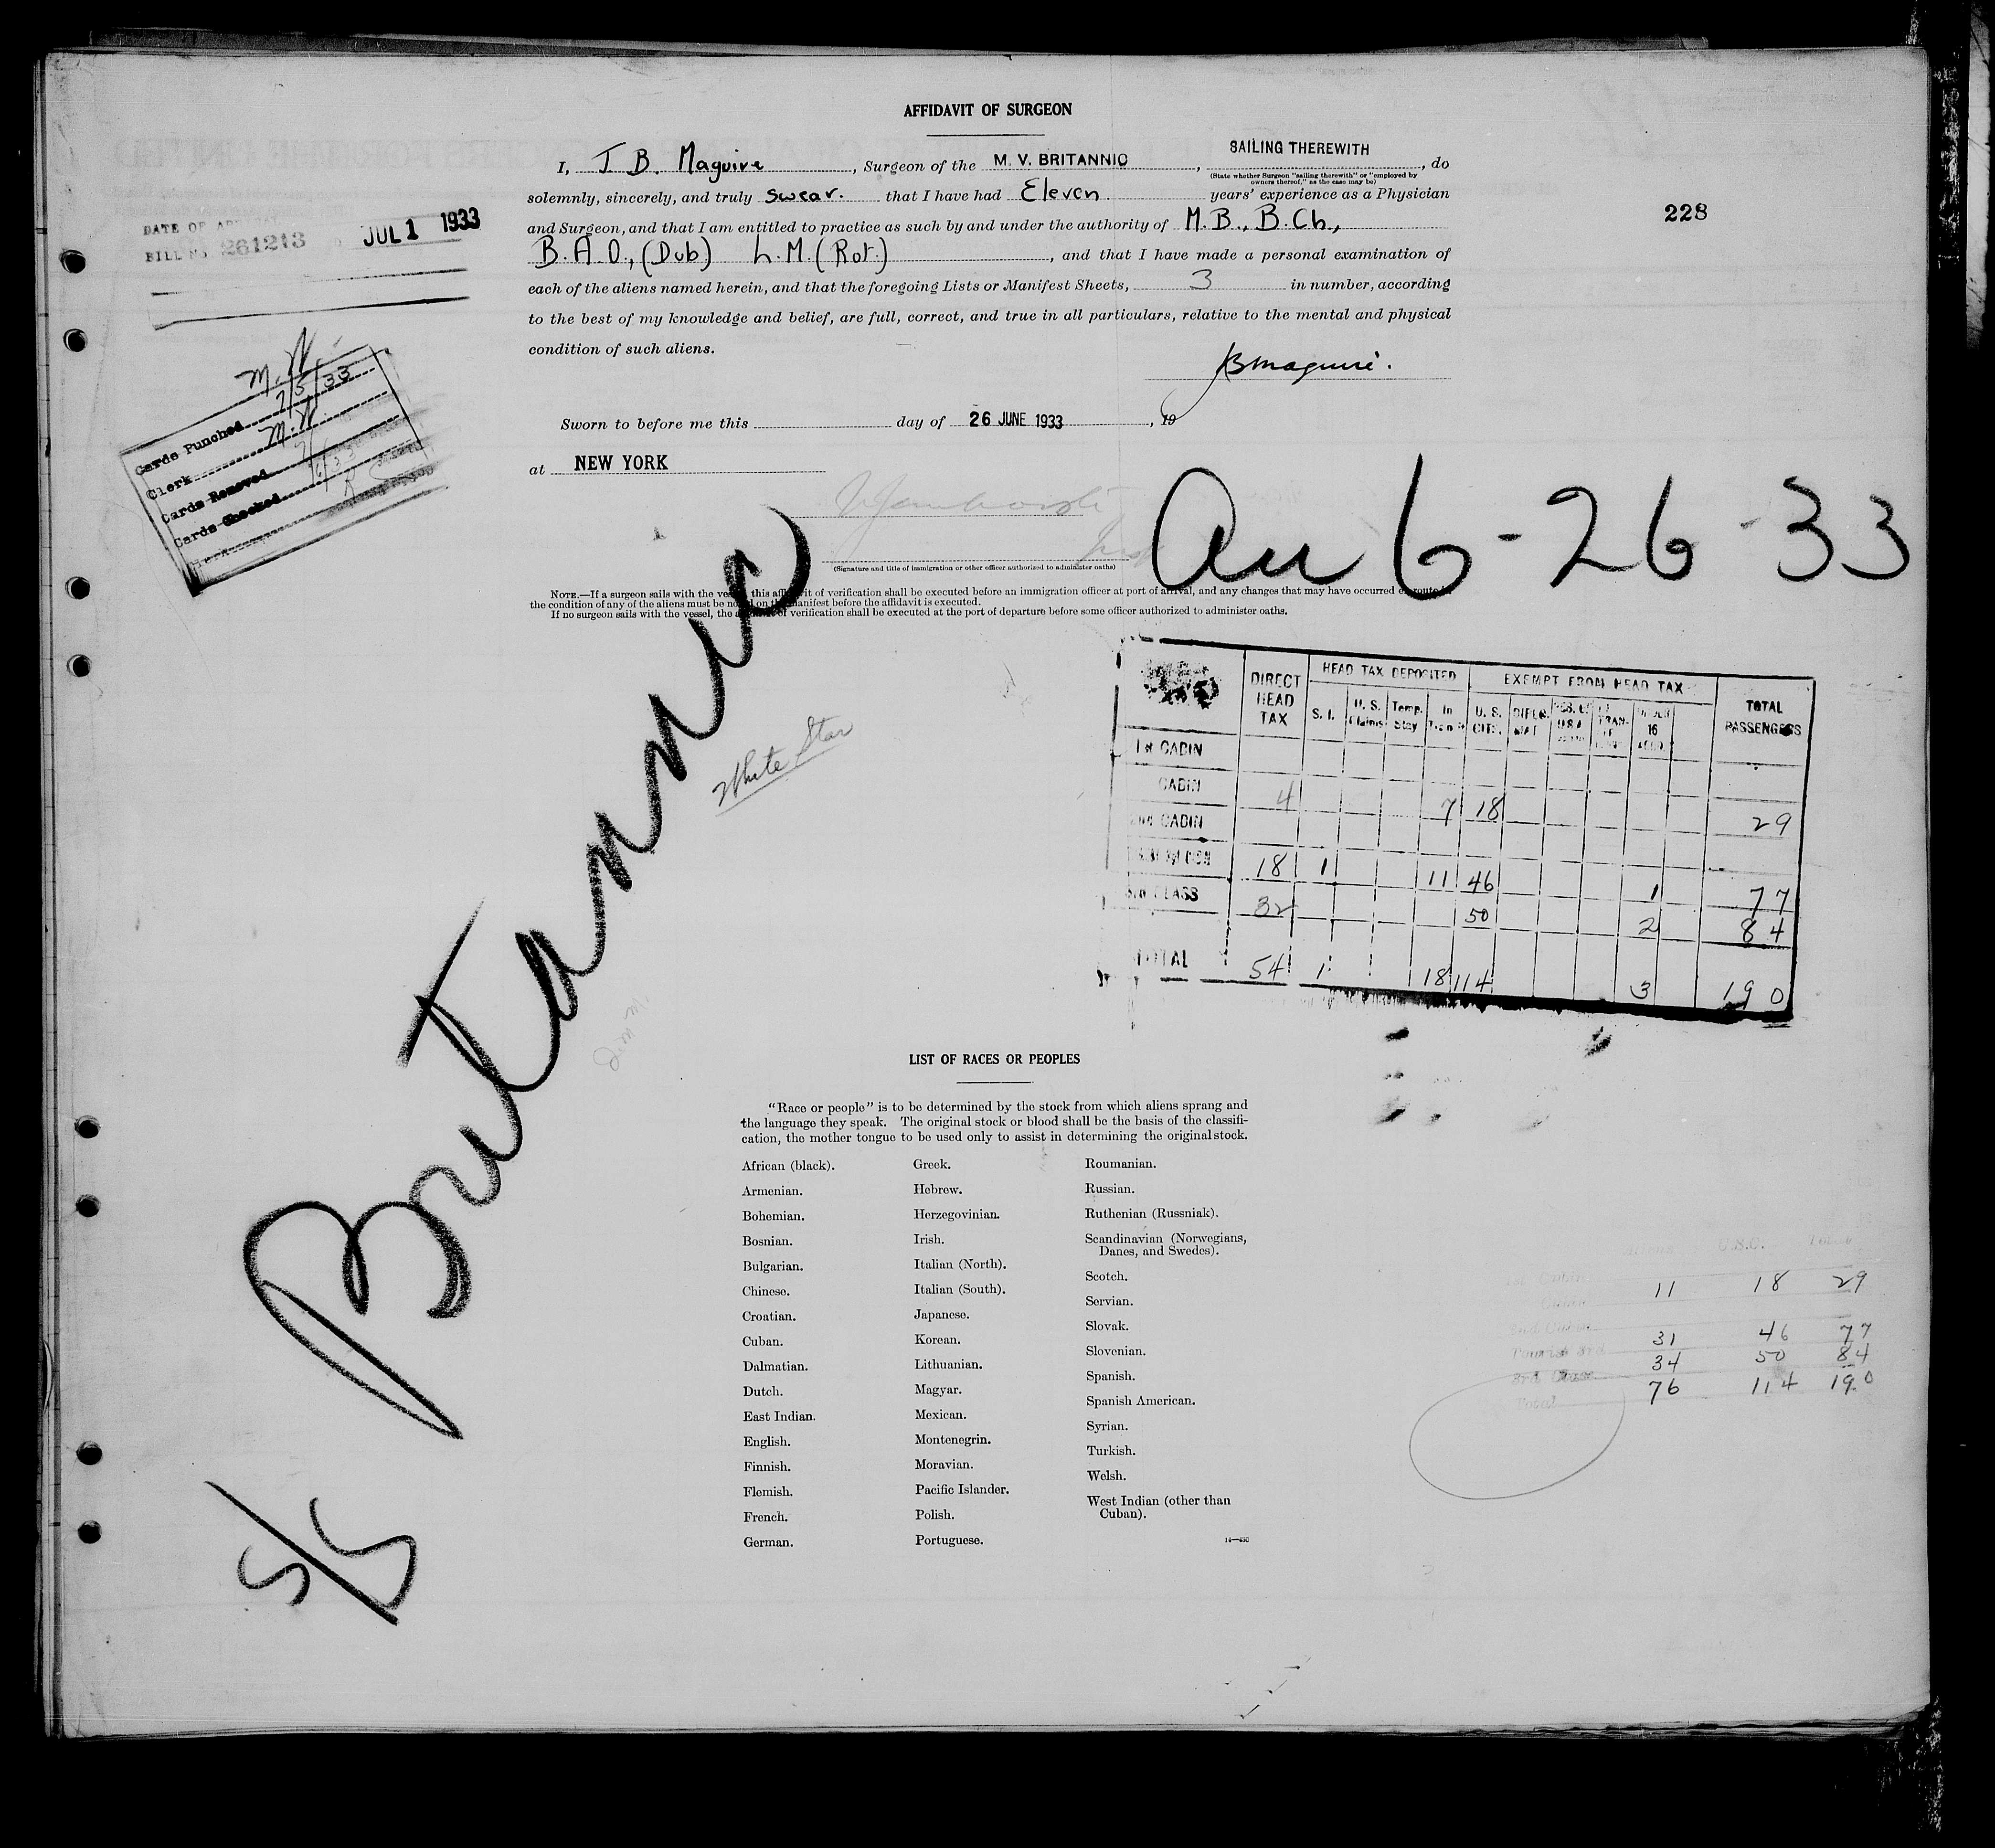 AFFIDAVIT OF SURGEON
I, J. B. Maguire, Surgeon of the M. V. BRITANNIC, SAILING THEREWITH, do
(State whether Surgeon "sailing therewith" or "employed by
owners thereof," as the case may be)
solemnly, sincerely, and truly swear. that I have had Eleven years' experience as a Physician
and Surgeon, and that I am entitled to practice as such by and under the authority of M.B., B.Ch.,
B.A.O., (Dub) L.M. (Rot.), and that I have made a personal examination of
each of the aliens named herein, and that the foregoing Lists or Manifest Sheets, 3 in number, according
to the best of my knowledge and belief, are full, correct, and true in all particulars, relative to the mental and physical
condition of such aliens.
JBMaguire.
Sworn to before me this day of 26 JUNE 1933, 19
at NEW YORK
(Signature and title of immigration or other officer authorized to administer oaths)
NOTE.—If a surgeon sails with the vessel, this affidavit of verification shall be executed before an immigration officer at port of arrival, and any changes that may have occurred en route
the condition of any of the aliens must be noted on the manifest before the affidavit is executed.
If no surgeon sails with the vessel, the affidavit of verification shall be executed at the port of departure before some officer authorized to administer oaths.
228
DATE OF
BILL NO. 261213 JUL 1 1933
M.W.
Cards Punched 7/5/33
Clerk M.W.
Cards Removed
Cards Checked
Arr 6-26-33
S/S Britannic
White Star
DIRECT HEAD TAX HEAD TAX DEPOSITED EXEMPT FROM HEAD TAX TOTAL PASSENGERS
S. I. U. S. Claims Temp. Stay In Transit U. S. CITS. 16
1st CABIN
CABIN 4 7 18 29
2nd CABIN
18 1 11 46 1 77
3rd CLASS 32 50 2 84
TOTAL 54 1 18 114 3 190
LIST OF RACES OR PEOPLES
"Race or people" is to be determined by the stock from which aliens sprang and
the language they speak. The original stock or blood shall be the basis of the classifi-
cation, the mother tongue to be used only to assist in determining the original stock.
African (black).
Armenian.
Bohemian.
Bosnian.
Bulgarian.
Chinese.
Croatian.
Cuban.
Dalmatian.
Dutch.
East Indian.
English.
Finnish.
Flemish.
French.
German.
Greek.
Hebrew.
Herzegovinian.
Irish.
Italian (North).
Italian (South).
Japanese.
Korean.
Lithuanian.
Magyar.
Mexican.
Montenegrin.
Moravian.
Pacific Islander.
Polish.
Portuguese.
Roumanian.
Russian.
Ruthenian (Russniak).
Scandinavian (Norwegians,
Danes, and Swedes).
Scotch.
Servian.
Slovak.
Slovenian.
Spanish.
Spanish American.
Syrian.
Turkish.
Welsh.
West Indian (other than
Cuban).
U.S.C. Total
11 18 29
2nd Cabin
Tourist 3rd 31 46 77
3rd Class 34 50 84
Total 76 114 190